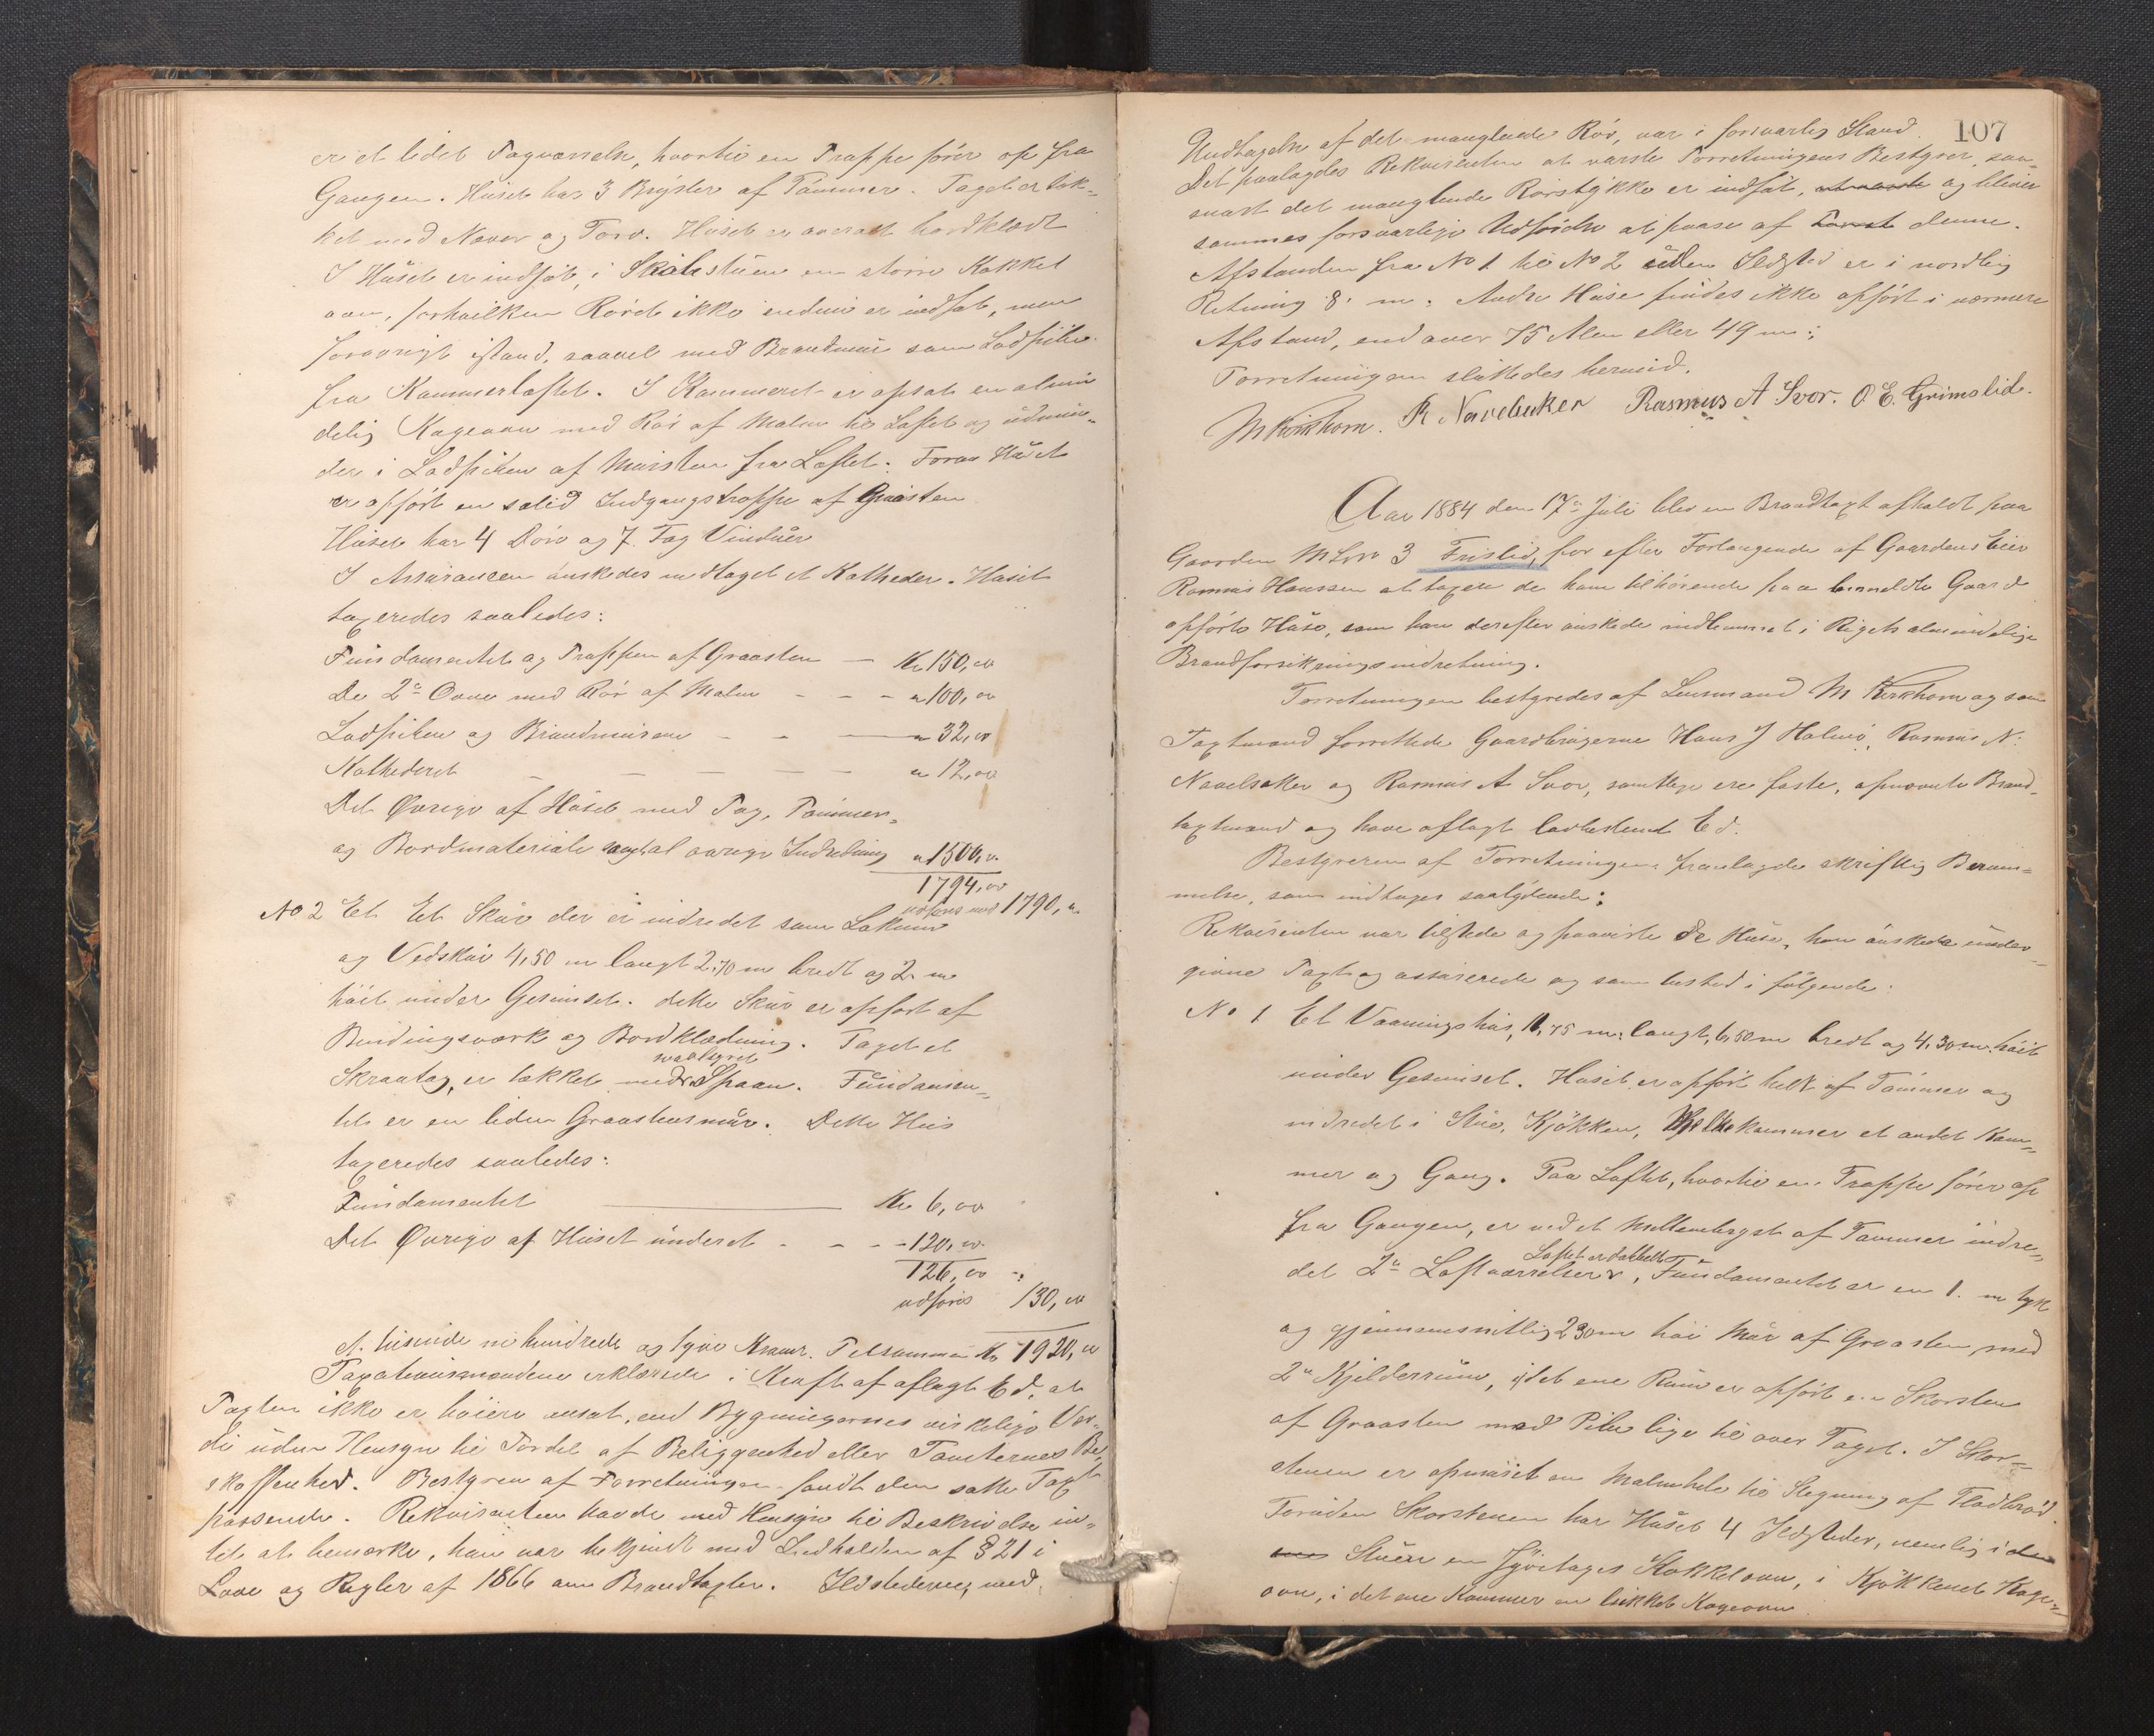 er et lidet Tagværrelse, hvortil en Trappe fører op fra
Gangen. Huset har 3 Bryster af Tømmer. Taget er tæk-
ket med Næver og Torv. Huset er overalt bordklædt
I Huset er indsat, i Skolestuen en større Kakkel
ovn, forhvilken Røret ikke endnu er indsat, men
forøvrigt istand, saavel med Brandmur som Ladpibe
fra Kammerloftet. I Kammeret er opsat en almin
delig Kogeovn med Rør af Malm til Loftet og udmun-
der i Ladpiben af Mursten fra Loftet. Foran Huset
er opført en solid Indgangstrappe af Graasten
Huset har 4 Døre og 7 Fag Vinduer
I Assurancen ønskedes medtaget et Katheder. Huset
taxeredes saaledes:
Fundamentet og Trappen af Graasten — Kr 150,00
De 2de Ovne med Rør af Malm - - - " 100,00
Ladpiben og Brandmuren - - — " 32,00
Kathederet — — — — — " 12,00
Det Øvrige af Huset med Tag, Tømmer-
og Bordmateriale samt al øvrige Indredning " 1500,00
1794,00
udføres med 1790,00
No 2 Et Et Skur der er indredet som Lokum
og Vedskur 4,50 m langt 2,70 m bredt og 2 m
høit under Gesimset. dette Skur er opført af
Bindingsværk og Bordklædning. Taget et
Skraatag, er tækket med vaaltjæret Spaan. Fundamen-
tet er en liden Graastensmur. Dette Hus
taxeredes saaledes:
Fundamentet — Kr 6,00
Det Øvrige af Huset under et - - - 120,00
126,00
udføres 130,00
et tusinde ni hundrede og tyve Kroner. Tilsammen Kr 1920,00
Taxationsmændene erklærede i Kraft af aflagt Ed, at
Taxten ikke er høiere ansat, end Bygningernes virkelige Vær-
di uden Hensyn til Fordel af Beliggenhed eller Tomternes Be-
skaffenhed. Bestyreren af Forretningen fandt den satte Taxt
passende. Rekvirenten havde med Hensyn til Beskrivelse in-
tet at bemærke, han var bekjendt med Indholdet af § 21 i
Love og Regler af 1866 om Brandtaxter. Ildstederne, med
107
Undtagelse af det manglende Rør, var i forsvarlig Stand.
Det paalagdes Rekvirenten at varsle Forretningens Bestyrer, saa-
snart det manglende Rørstykke er indsat, og bliver
sammes forsvarlige Udførelse at paase af denne.
Afstanden fra No 1 til No 2 uden Ildsted er i nordlig
Retning 8. m. Andre Huse findes ikke opført i nærmere
Afstand, end over 75 Alen eller 49 m:
Forretningen sluttedes hermed.
M Kirkhorn. R Navelsaker Rasmus A Svor. O E. Grimslid.
Aar 1884 den 17de Juli blev en Brandtaxt afholdt paa
Gaarden M Lno 3 Frislid, for efter Forlangende af Gaardens Eier
Rasmus Hanssen at taxere de ham tilhørende paa bemeldte Gaard
opførte Huse, som han derefter ønskede indlemmet i Rigets almindelige
Brandforsikringsindretning.
Forretningen bestyredes af Lensmand M Kirkhorn og som
Taxtmænd forrettede Gaardbrugerne Hans J Holmø, Rasmus N.
Navelsaker og Rasmus A Svor, samtlige ere faste, opnævnte Brand-
taxtmænd og have aflagt lovbestemt Ed.
Bestyreren af Forretningen fremlagde skriftlig Beram-
melse, som indtages saalydende:
Rekvirenten var tilstede og paaviste de Huse, han ønskede under-
givne Taxt og assurerede og som bestod i følgende:
No 1 Et Vaaningshus, 11,75 m. langt, 6,50 m bredt og 4,30 m. høit
under Gesimset. Huset er opført helt af Tømmer og
indredet i Stue, Kjøkken, Melkekammer et andet Kam-
mer og Gang. Paa Loftet, hvortil en Trappe fører op
fra Gangen, er ved et Mellembryst af Tømmer indre-
det 2de Loftværrelser, Loftet er dobbelt. Fundamentet er en 1. m tyk
og gjennemsnitlig 2,30 m høi Mur af Graasten, med
2de Kjelderrum, i det ene Rum er opført en Skorsten
af Graasten med Pibe lige til over Taget. I Skor-
stenen er opmuret en Malmhelle til Stegning af Fladbrød.
Foruden Skorstenen har Huset 4 Ildsteder, nemlig i
Stuen en Etages Kakkelovn, i Kjøkkenet Koge-
ovn, i det ene Kammer en lukket Kogeovn